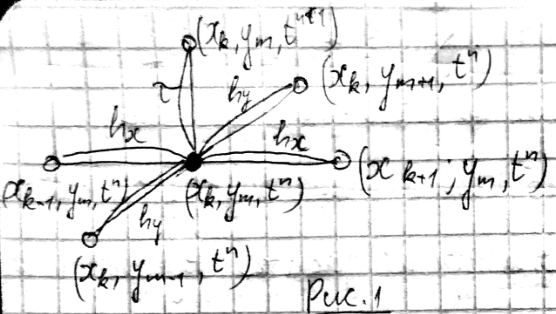 (x_k, y_m, t^{n+1})
τ
h_y
(x_k, y_{m+1}, t^n)
h_x
h_x
(x_{k-1}, y_m, t^n)
(x_k, y_m, t^n)
(x_{k+1}, y_m, t^n)
h_y
(x_k, y_{m-1}, t^n)
Рис. 1